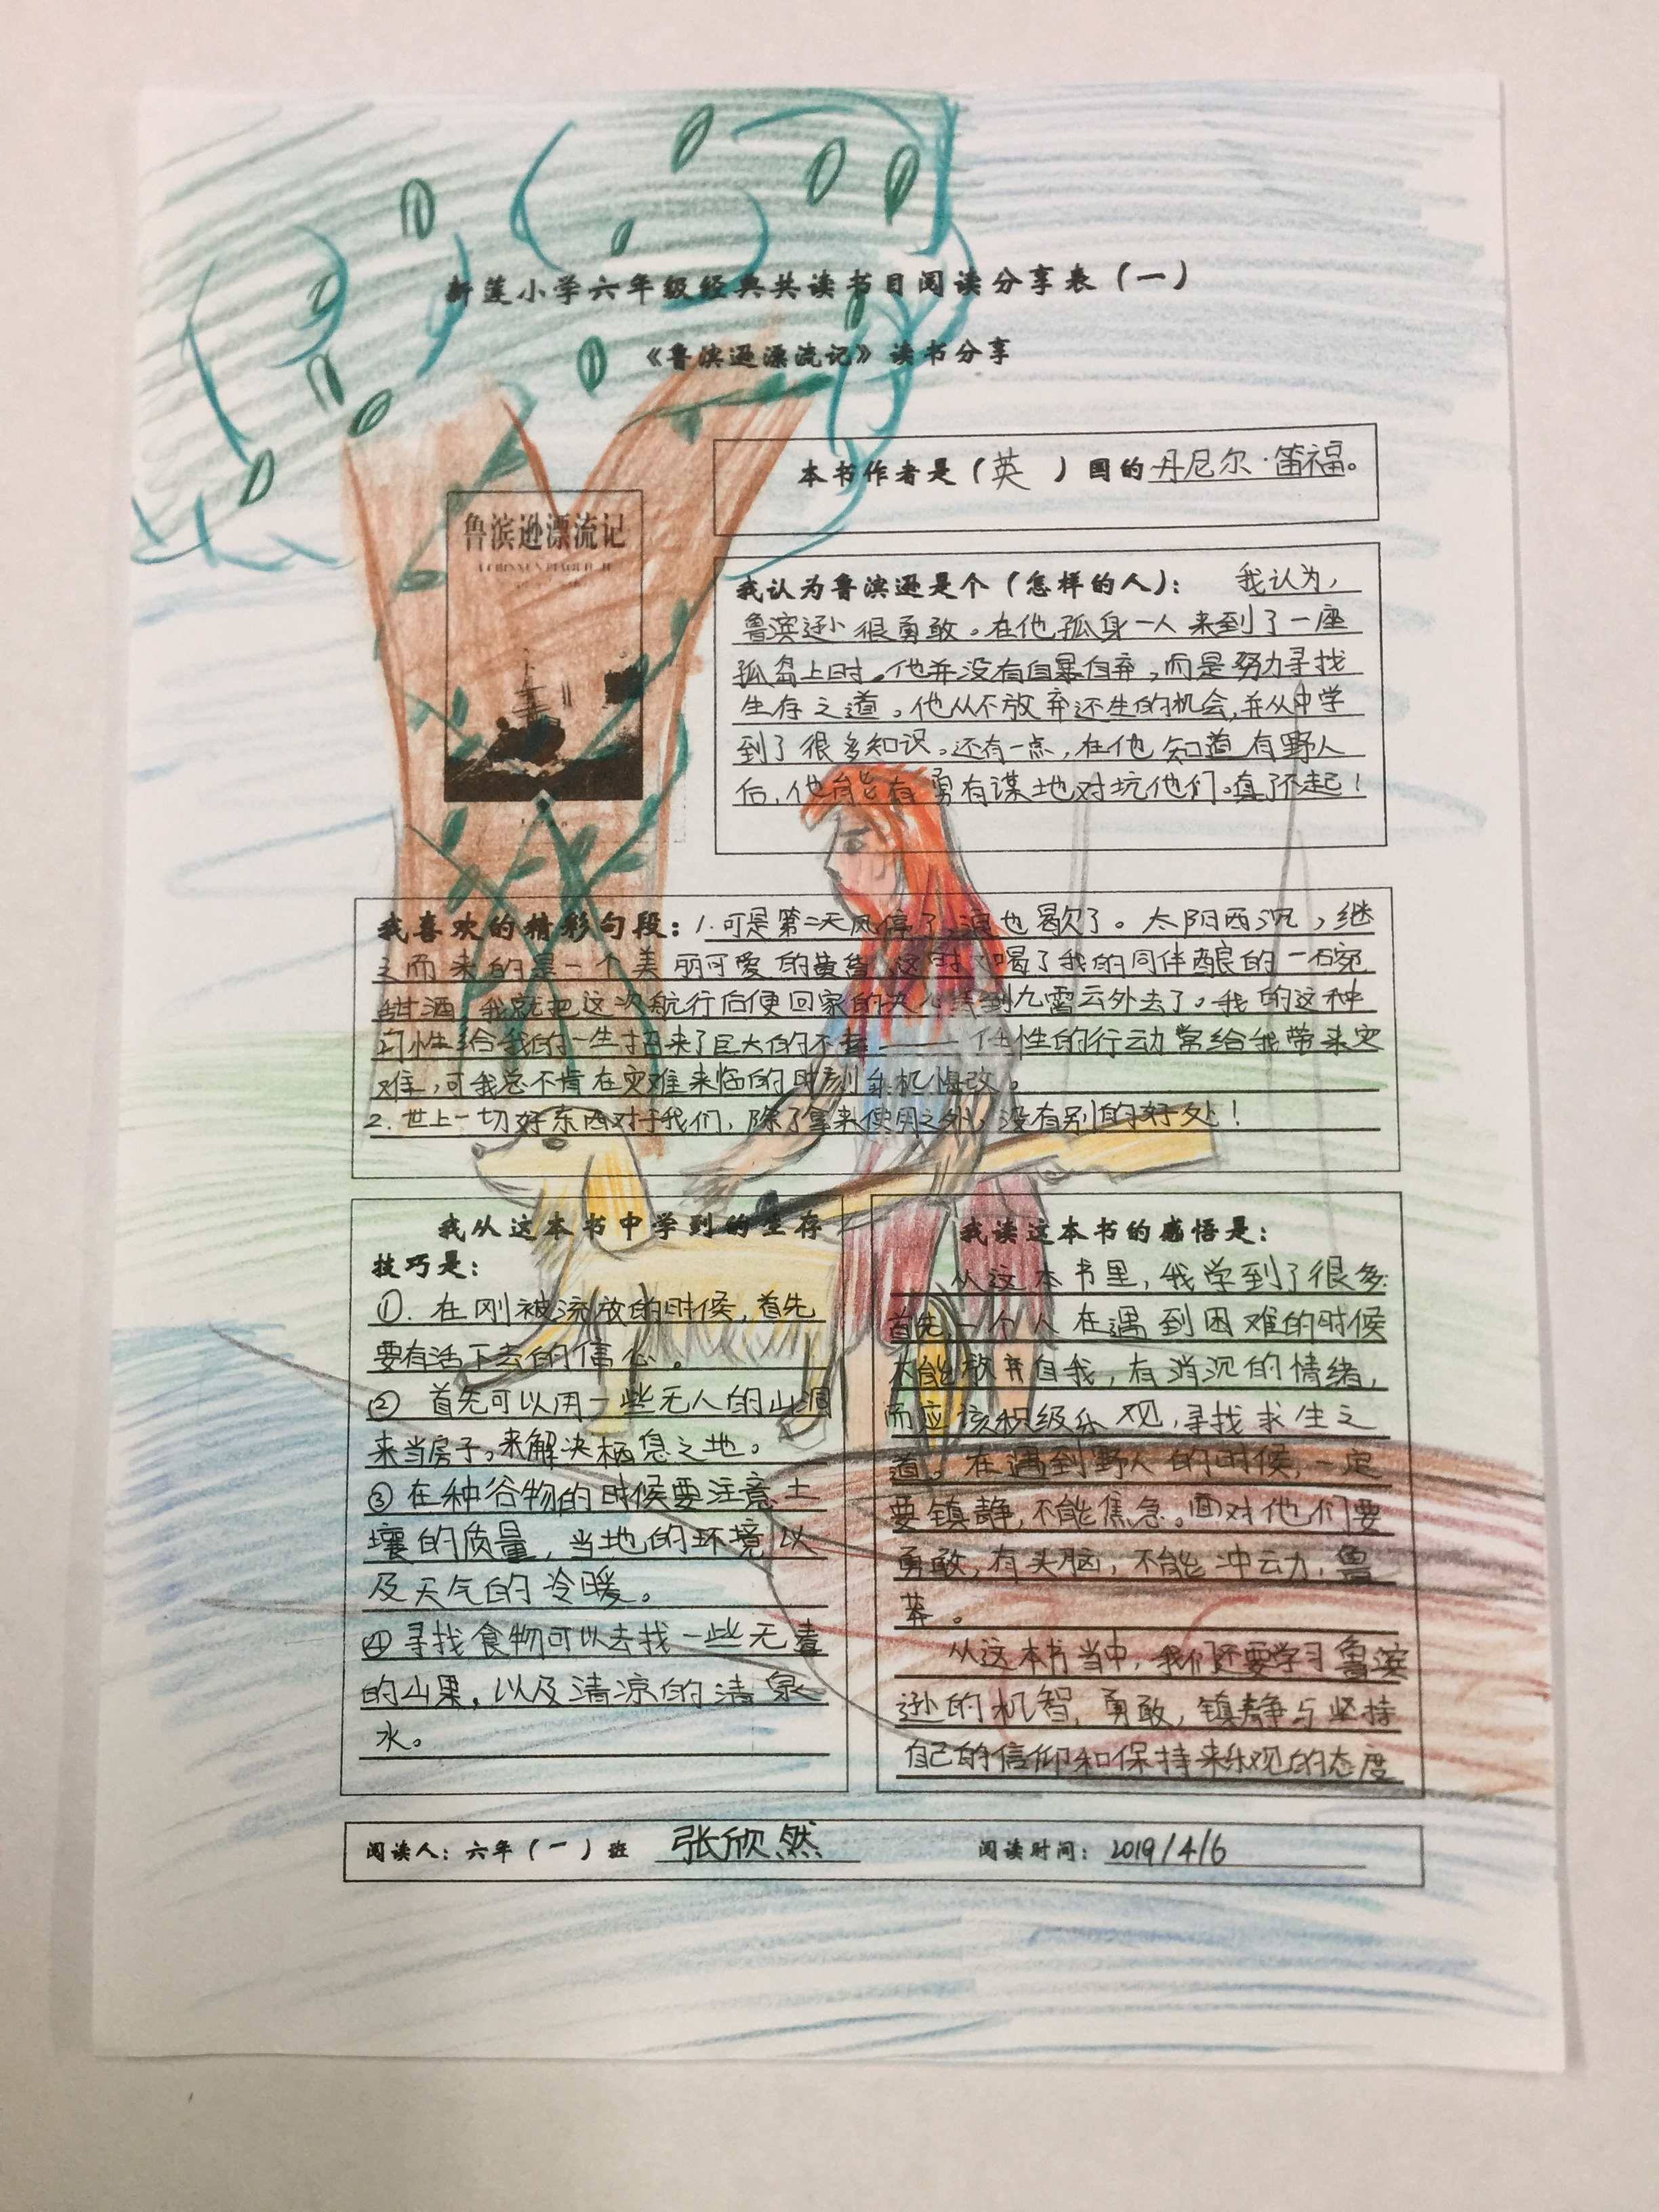 新莲小学六年级经典共读书目阅读分享表（一）
《鲁滨逊漂流记》读书分享
本书作者是（英 ）国的丹尼尔·笛福。
鲁滨逊漂流记
我认为鲁滨逊是个（怎样的人）： 我认为，
鲁滨逊很勇敢。在他孤身一人来到了一座
孤岛上时。他并没有自暴自弃，而是努力寻找
生存之道。他从不放弃还生的机会，并从中学
到了很多知识。还有一点，在他知道有野人
后，他能有勇有谋地对坑他们。真了不起！
我喜欢的精彩句段：1.可是第二天风停了，浪也歇了。太阳西沉，继
之而来的是一个美丽可爱的黄昏，这时又喝了我的同伴酿的一碗
甜酒，我就把这次航行后便回家的决心丢到九霄云外去了。我的这种
习性给我的一生招来了巨大的不幸——任性的行动常给我带来灾
难，可我总不肯在灾难来临的时刻乘机悔改。
2.世上一切好东西对于我们，除了拿来使用之外，没有别的好处！
我从这本书中学到的生存
技巧是：
①.在刚被流放的时候，首先
要有活下去的信心。
② 首先可以用一些无人的山洞
来当房子。来解决栖息之地。
③在种谷物的时候要注意土
壤的质量，当地的环境以
及天气的冷暖。
④寻找食物可以去找一些无毒
的山果，以及清凉的清泉
水。
我读这本书的感悟是：
从这本书里，我学到了很多
首先，一个人在遇到困难的时候
不能放弃自我，有消沉的情绪，
而应该积级乐观，寻找求生之
道。在遇到野人的时候，一定
要镇静，不能焦急。面对他们要
勇敢，有头脑，不能冲动，鲁
莽。
从这本书当中，我们还要学习鲁滨
逊的机智，勇敢，镇静与坚持
自己的信仰和保持来乐观的态度
阅读人：六年（一）班 张欣然 阅读时间：2019/4/6